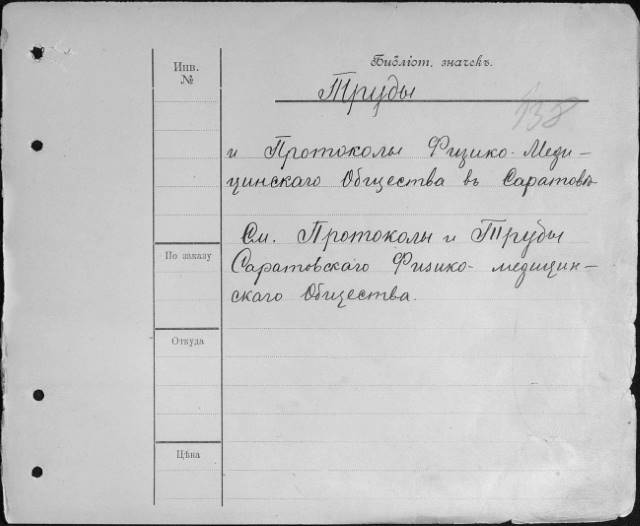 Инв.
№
Библіот. значекъ.
Труды
138
и Протоколы Физико-Меди-
цинскаго Общества въ Саратовѣ
См. Протоколы и Труды
По заказу
Саратовскаго Физико-медицин-
скаго Общества.
Откуда
Цѣна